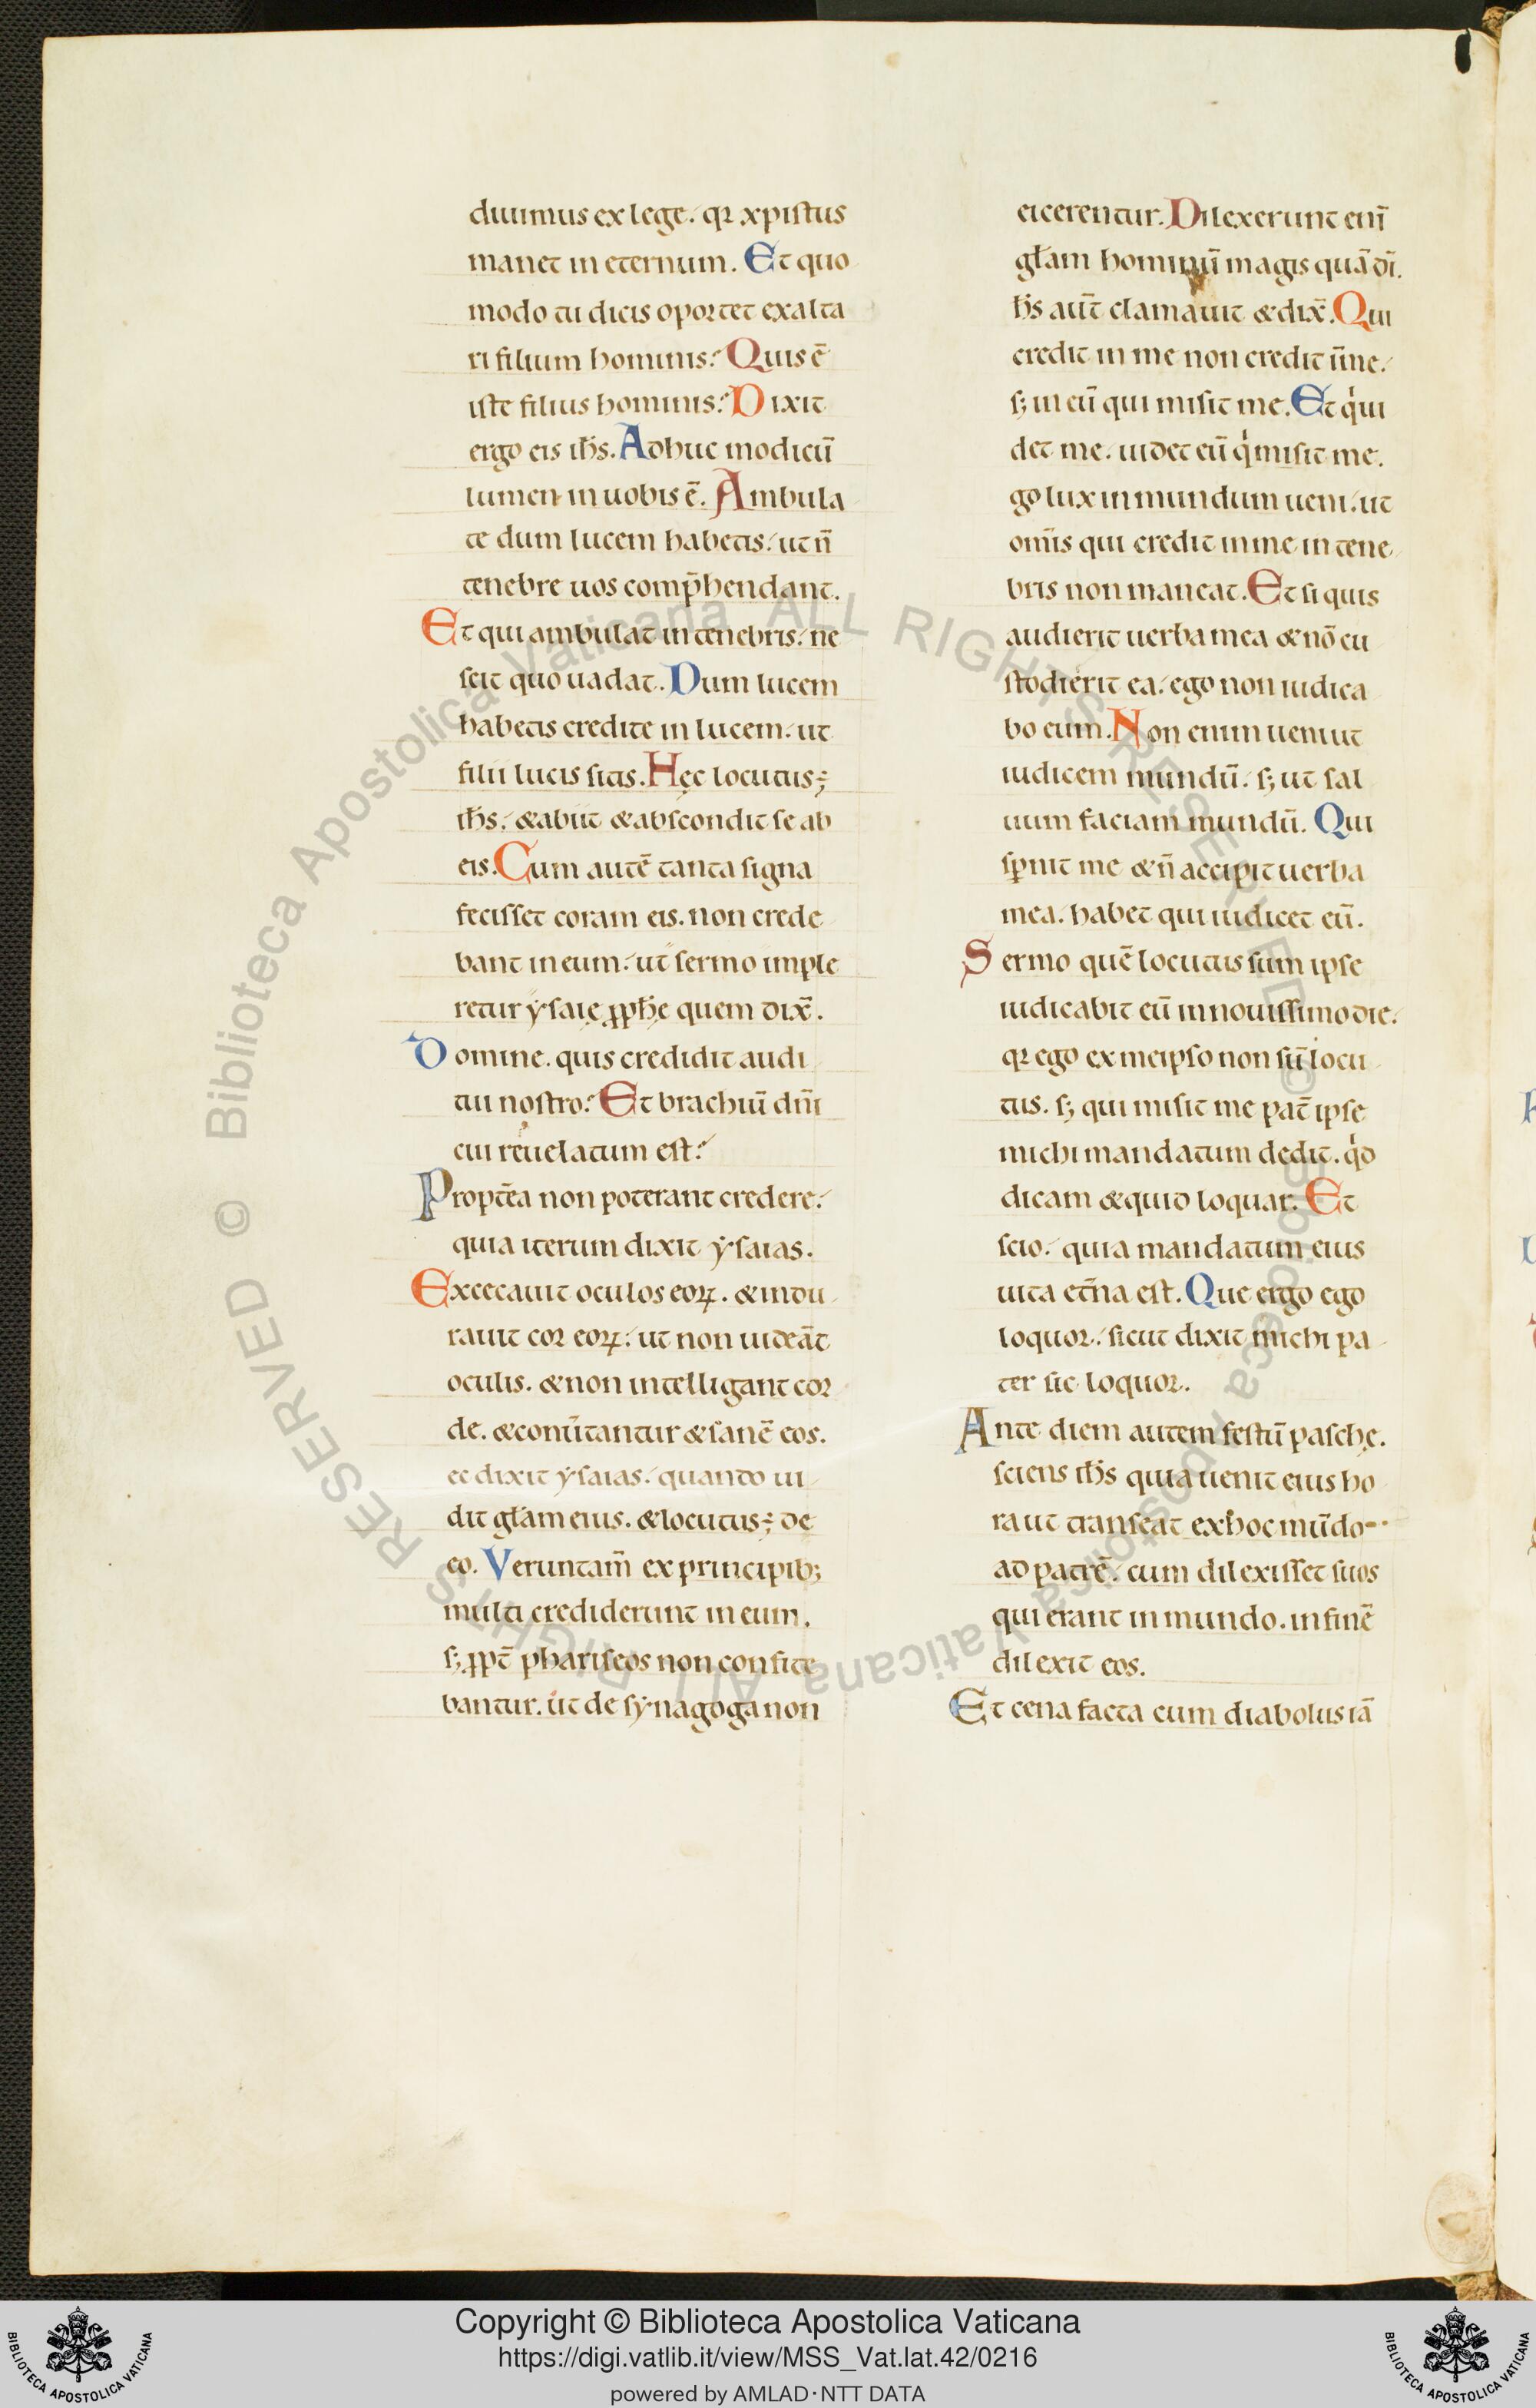 diuimus ex lege. qꝛ xpistus
manet in eternum. Et quo
modo tu dicis oportet exalta
ri filium hominis? Quis ē
iste filius hominis? Dixit
ergo eis ih̄s. Adhuc modicū
lumen in uobis ē. Ambula
te dum lucem habetis. ut n̄
tenebre uos comp̄hendant.
Et qui ambulat in tenebris. ne
scit quo uadat. Dum lucem
habetis credite in lucem. ut
filii lucis sitis. Hęc locutus ÷
ih̄s. & abiit & abscondit se ab
eis. Cum autē tanta signa
fecisset coram eis. non crede
bant in eum. ut sermo imple
retur ysaię ꝓph̄ę quem dix̄.
Domine. quis credidit audi
tui nostro? Et brachiū dn̄i
cui reuelatum est?
Propt̄ea non poterant credere.
quia iterum dixit ysaias.
Excecauit oculos eoꝝ. & indu
rauit cor eoꝝ. ut non uideāt
oculis. & non intelligant cor
de. & conūtantur & sanē eos.
ec dixit ysaias. quando ui
dit gl̄am eius. & locutus ÷ de
eo. Veruntam̄ ex principib;
multi crediderunt in eum.
s; ꝓpt̄ phariseos non confite
bantur. ut de synagoga non
eicerentur. Dilexerunt enī
gl̄am hominū magis quā dī.
Ih̄s aut̄ clamauit & dix̄. Qui
credit in me non credit in me.
s; in eū qui misit me. Et qui
det me. uidet eū qi misit me.
go lux in mundum ueni. ut
omīs qui credit in me in tene
bris non maneat. Et si quis
audierit uerba mea & nō cu
stodierit ea. ego non iudica
bo eum. Non enim ueni ut
iudicem mundū. s; ut sal
uum faciam mundū. Qui
sp̄nit me & n̄ accipit uerba
mea. habet qui iudicet eū.
Sermo quē locutus sum ipse
iudicabit eū in nouissimo die.
qꝛ ego ex meipso non sū locu
tus. s; qui misit me pat̄ ipse
michi mandatum dedit. qd
dicam & quid loquar. Et
scio. quia mandatum eius
uita et̄na est. Que ergo ego
loquor. sicut dixit michi pa
ter sic loquor.
Ante diem autem festū paschę.
sciens ih̄s quia uenit eius ho
ra ut transeat ex hoc mūdo
ad patrē. cum dilexisset suos
qui erant in mundo. in finē
dilexit eos.
Et cena facta cum diabolus iā
Copyright © Biblioteca Apostolica Vaticana
https://digi.vatlib.it/view/MSS_Vat.lat.42/0216
powered by AMLAD·NTT DATA
BIBLIOTECA APOSTOLICA VATICANA
BIBLIOTECA APOSTOLICA VATICANA
© Biblioteca Apostolica Vaticana ALL RIGHTS RESERVED
© Biblioteca Apostolica Vaticana ALL RIGHTS RESERVED